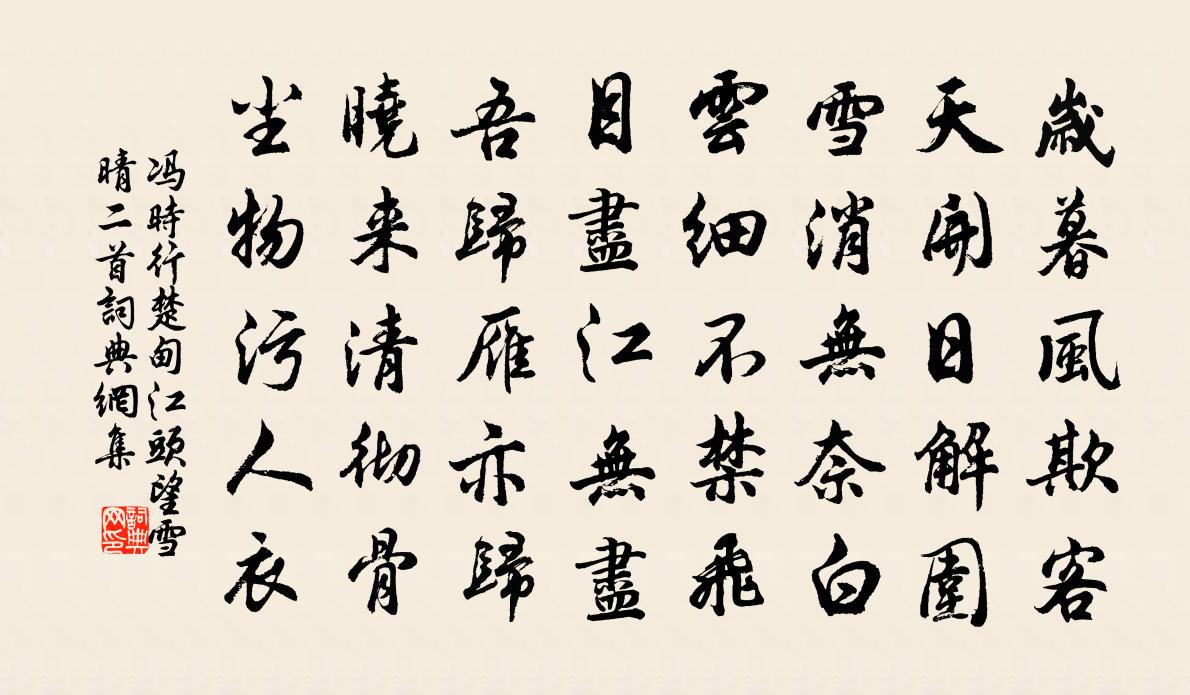 歲暮風欺客
天開日解圍
雪消無奈白
雲細不禁飛
目盡江無盡
吾歸雁亦歸
曉来清彻骨
坐物污人衣
冯時行楚甸江頭望雪
晴二首詞典網集
詞典网印